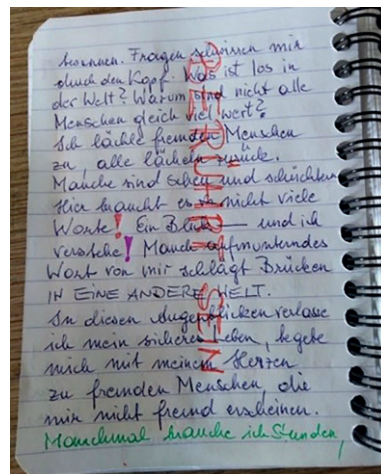 besonnen. Fragen schwirren mir
durch den Kopf. Was ist los in
der Welt? Warum sind nicht alle
Menschen gleich viel wert?
Ich lächle fremden Menschen
zu, alle lächeln zurück.
Manche sind scheu und schüchtern
Hier braucht es nicht viele
Worte! Ein Blick — und ich
verstehe! Manch aufmunterndes
Wort von mir schlägt Brücken
IN EINE ANDERE WELT.
In diesen Augenblicken verlasse
ich mein sicheres Leben, begebe
mich mit meinem Herzen
zu fremden Menschen die
mir nicht fremd erscheinen.
Manchmal brauche ich Stunden,